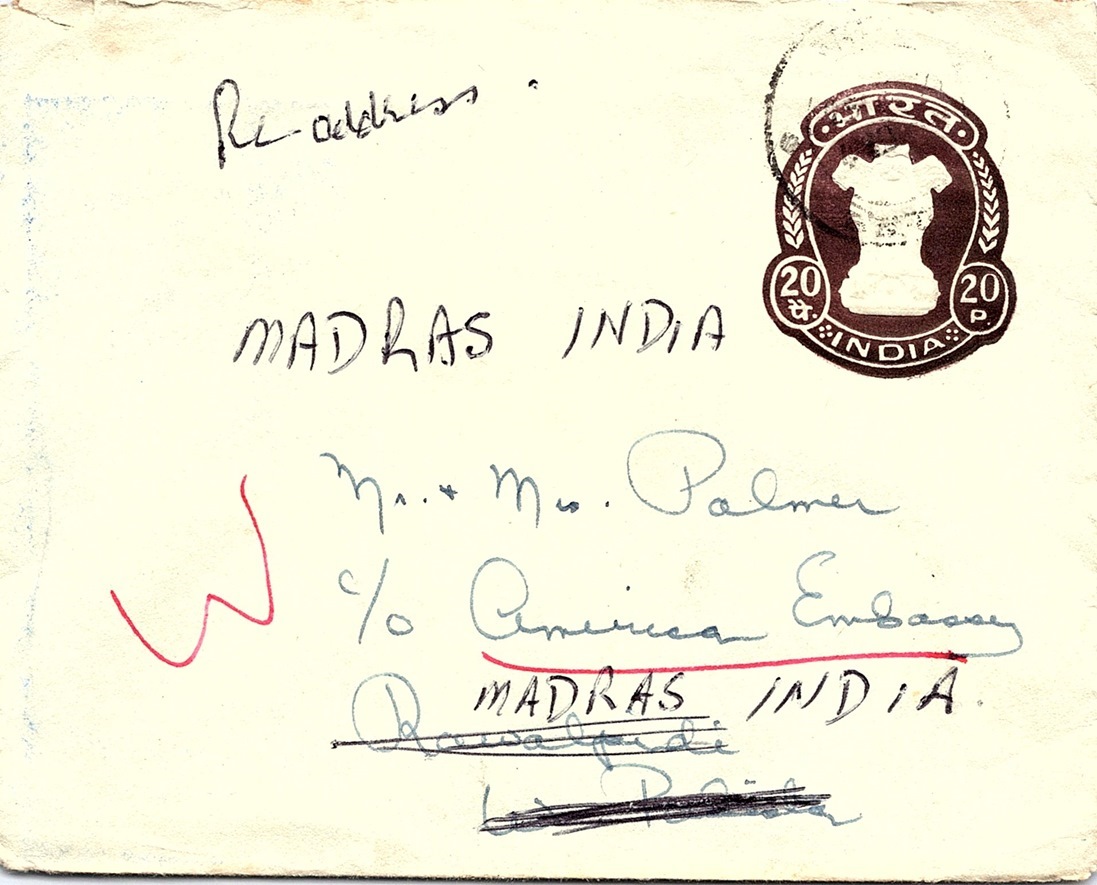 Re-address.
भारत
20 पै. 20 P.
INDIA
MADRAS INDIA
Mr. + Mrs. Palmer
c/o American Embassy
MADRAS INDIA.
Rawalpindi
W. Pakistan
W